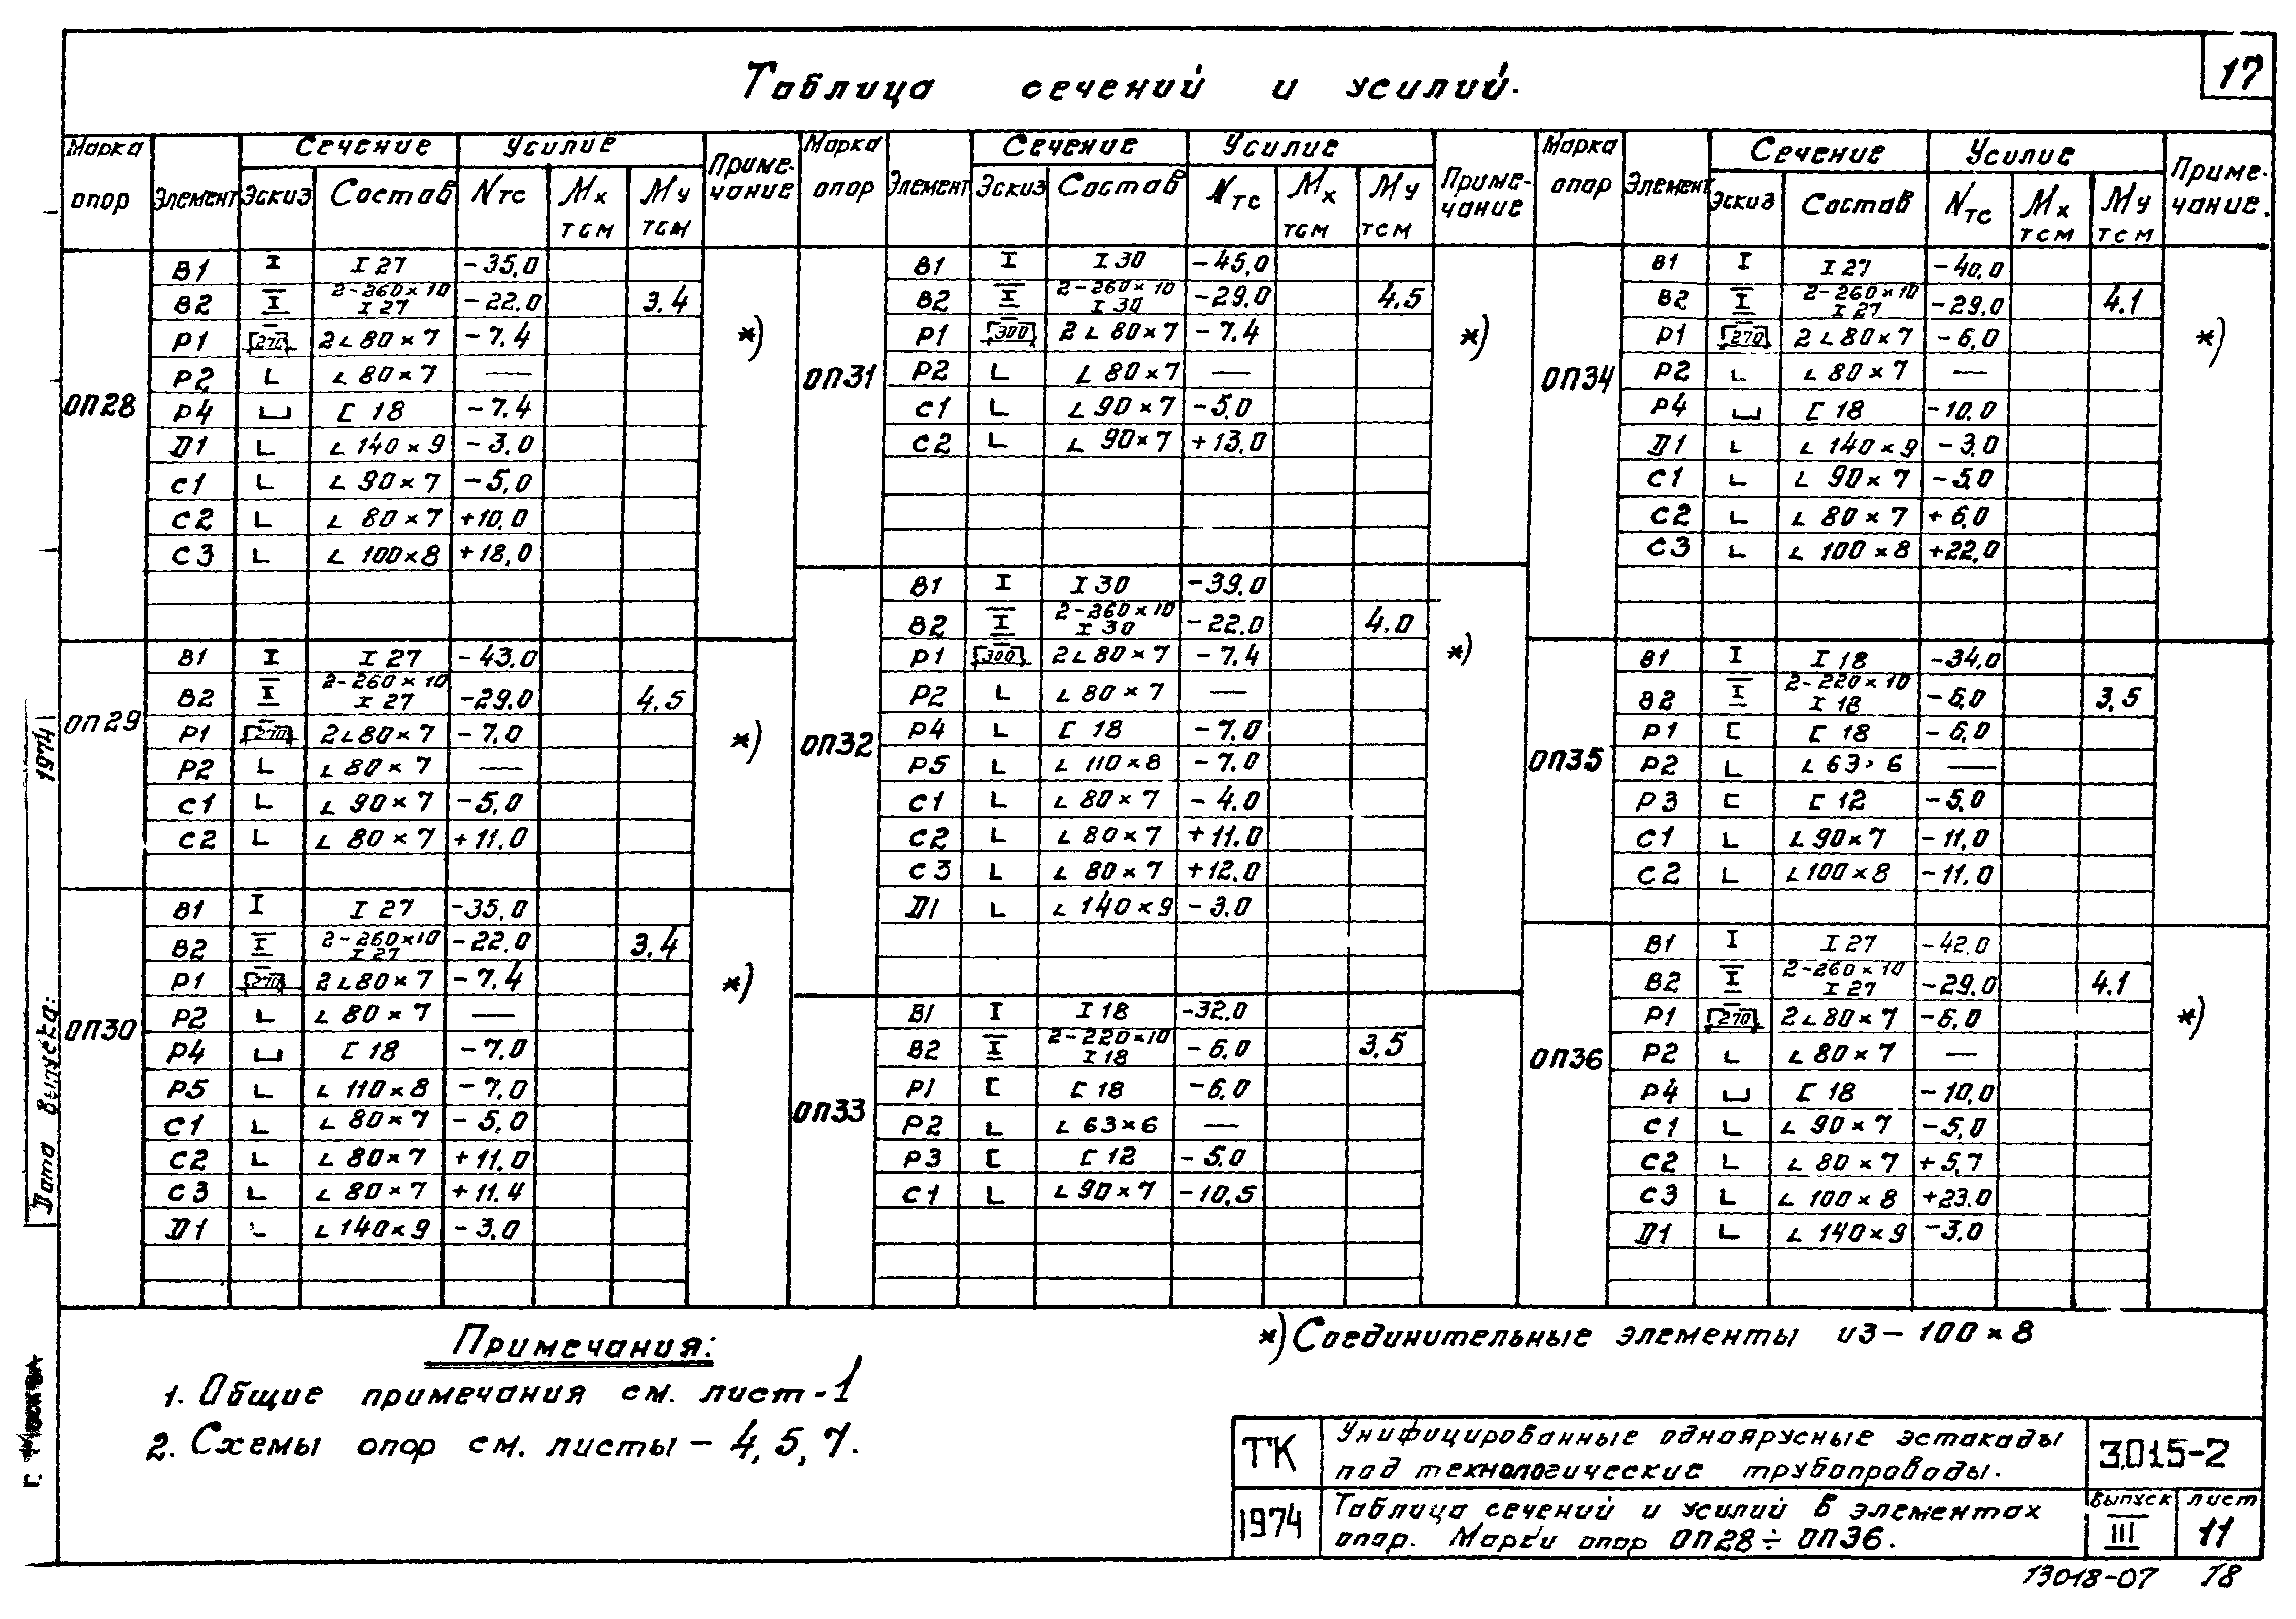 17
Таблица сечений и усилий.
Марка опор Элемент Сечение Эскиз Состав Усилие Nтс Мх тсм Му тсм Примечание
ОП28
В1 I I 27 -35,0
В2 2-260×10 I 27 -22,0 3,4 *)
Р1 270 2∟80×7 -7,4
Р2 ∟ ∟80×7 —
Р4 [ 18 -7,4
Д1 ∟ ∟140×9 -3,0
С1 ∟ ∟90×7 -5,0
С2 ∟ ∟80×7 +10,0
С3 ∟ ∟100×8 +18,0
ОП29
В1 I I 27 -43,0
В2 2-260×10 I 27 -29,0 4,5
Р1 270 2∟80×7 -7,0 *)
Р2 ∟ ∟80×7 —
С1 ∟ ∟90×7 -5,0
С2 ∟ ∟80×7 +11,0
ОП30
В1 I I 27 -35,0
В2 2-260×10 I 27 -22,0 3,4
Р1 270 2∟80×7 -7,4 *)
Р2 ∟ ∟80×7 —
Р4 [ 18 -7,0
Р5 ∟ ∟110×8 -7,0
С1 ∟ ∟80×7 -5,0
С2 ∟ ∟80×7 +11,0
С3 ∟ ∟80×7 +11,4
Д1 ∟ ∟140×9 -3,0
Марка опор Элемент Сечение Эскиз Состав Усилие Nтс Мх тсм Му тсм Примечание
ОП31
В1 I I 30 -45,0
В2 2-260×10 I 30 -29,0 4,5
Р1 300 2∟80×7 -7,4 *)
Р2 ∟ ∟80×7 —
С1 ∟ ∟90×7 -5,0
С2 ∟ ∟90×7 +13,0
ОП32
В1 I I 30 -39,0
В2 2-260×10 I 30 -22,0 4,0
Р1 300 2∟80×7 -7,4 *)
Р2 ∟ ∟80×7 —
Р4 ∟ [ 18 -7,0
Р5 ∟ ∟110×8 -7,0
С1 ∟ ∟80×7 -4,0
С2 ∟ ∟80×7 +11,0
С3 ∟ ∟80×7 +12,0
Д1 ∟ ∟140×9 -3,0
ОП33
В1 I I 18 -32,0
В2 2-220×10 I 18 -6,0 3,5
Р1 [ [ 18 -6,0
Р2 ∟ ∟63×6 —
Р3 [ [ 12 -5,0
С1 ∟ ∟90×7 -10,5
Марка опор Элемент Сечение Эскиз Состав Усилие Nтс Мх тсм Му тсм Примечание.
ОП34
В1 I I 27 -40,0
В2 2-260×10 I 27 -29,0 4,1
Р1 270 2∟80×7 -6,0 *)
Р2 ∟ ∟80×7 —
Р4 [ 18 -10,0
Д1 ∟ ∟140×9 -3,0
С1 ∟ ∟90×7 -5,0
С2 ∟ ∟80×7 +6,0
С3 ∟ ∟100×8 +22,0
ОП35
В1 I I 18 -34,0
В2 2-220×10 I 18 -6,0 3,5
Р1 [ [ 18 -6,0
Р2 ∟ ∟63×6 —
Р3 [ [ 12 -5,0
С1 ∟ ∟90×7 -11,0
С2 ∟ ∟100×8 -11,0
ОП36
В1 I I 27 -42,0
В2 2-260×10 I 27 -29,0 4.1
Р1 270 2∟80×7 -6,0 *)
Р2 ∟ ∟80×7 —
Р4 [ 18 -10,0
С1 ∟ ∟90×7 -5,0
С2 ∟ ∟80×7 +5,7
С3 ∟ ∟100×8 +23,0
Д1 ∟ ∟140×9 -3,0
Примечания:
1. Общие примечания см. лист-1
2. Схемы опор см. листы – 4, 5, 7.
*) Соединительные элементы из – 100×8
ТК
Унифицированные одноярусные эстакады
под технологические трубопроводы.
3.015-2
1974
Таблица сечений и усилий в элементах
опор. Марки опор ОП28÷ОП36.
выпуск III
лист 11
13018-07 18
Дата выпуска: 1974
г. Москва